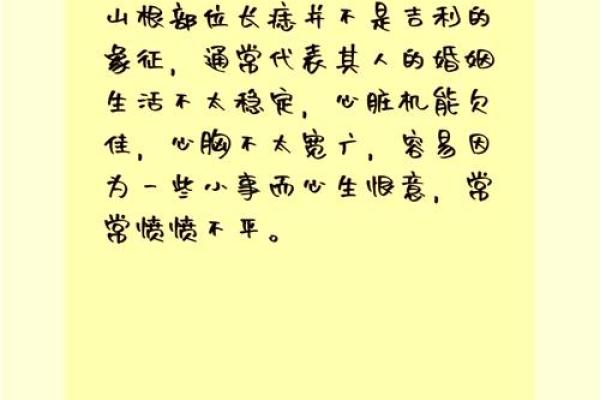 山根部位长痣并不是吉利的
象征，通常代表其人的婚姻
生活不太稳定，心脏机能欠
佳，心胸不太宽广，容易因
为一些小事而心生恨意，常
常愤愤不平。